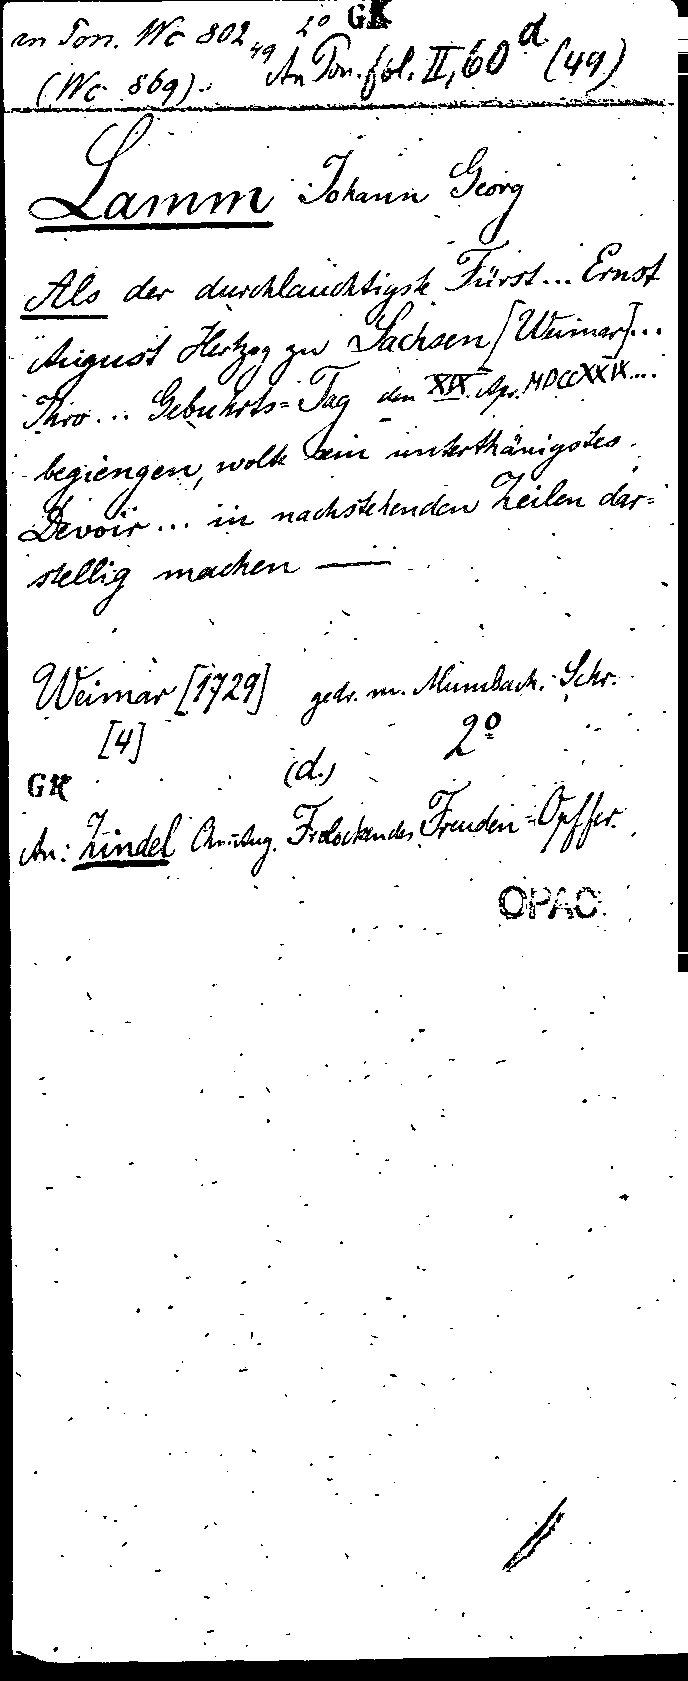 an Pon. Wc 802, 2º GK
(Wc 869). 49 An Pon. fol. II, 60 d (49)
Lamm Johann Georg
Als der durchlauchtigste Fürst... Ernst
August Hertzog zu Sachsen [Weimar]...
Ihro... Gebuhrts=Tag den XIX. Apr. MDCCXXIX....
begiengen, wolte sein unterthänigstes
Devoir... in nachstehenden Zeilen dar=
stellig machen —
Weimar [1729] gedr. m. Mumbach. Schr.
[4] 2º
GK (d.)
An: Zindel Chr. Aug. Frolockendes Freuden=Opffer.
OPAC